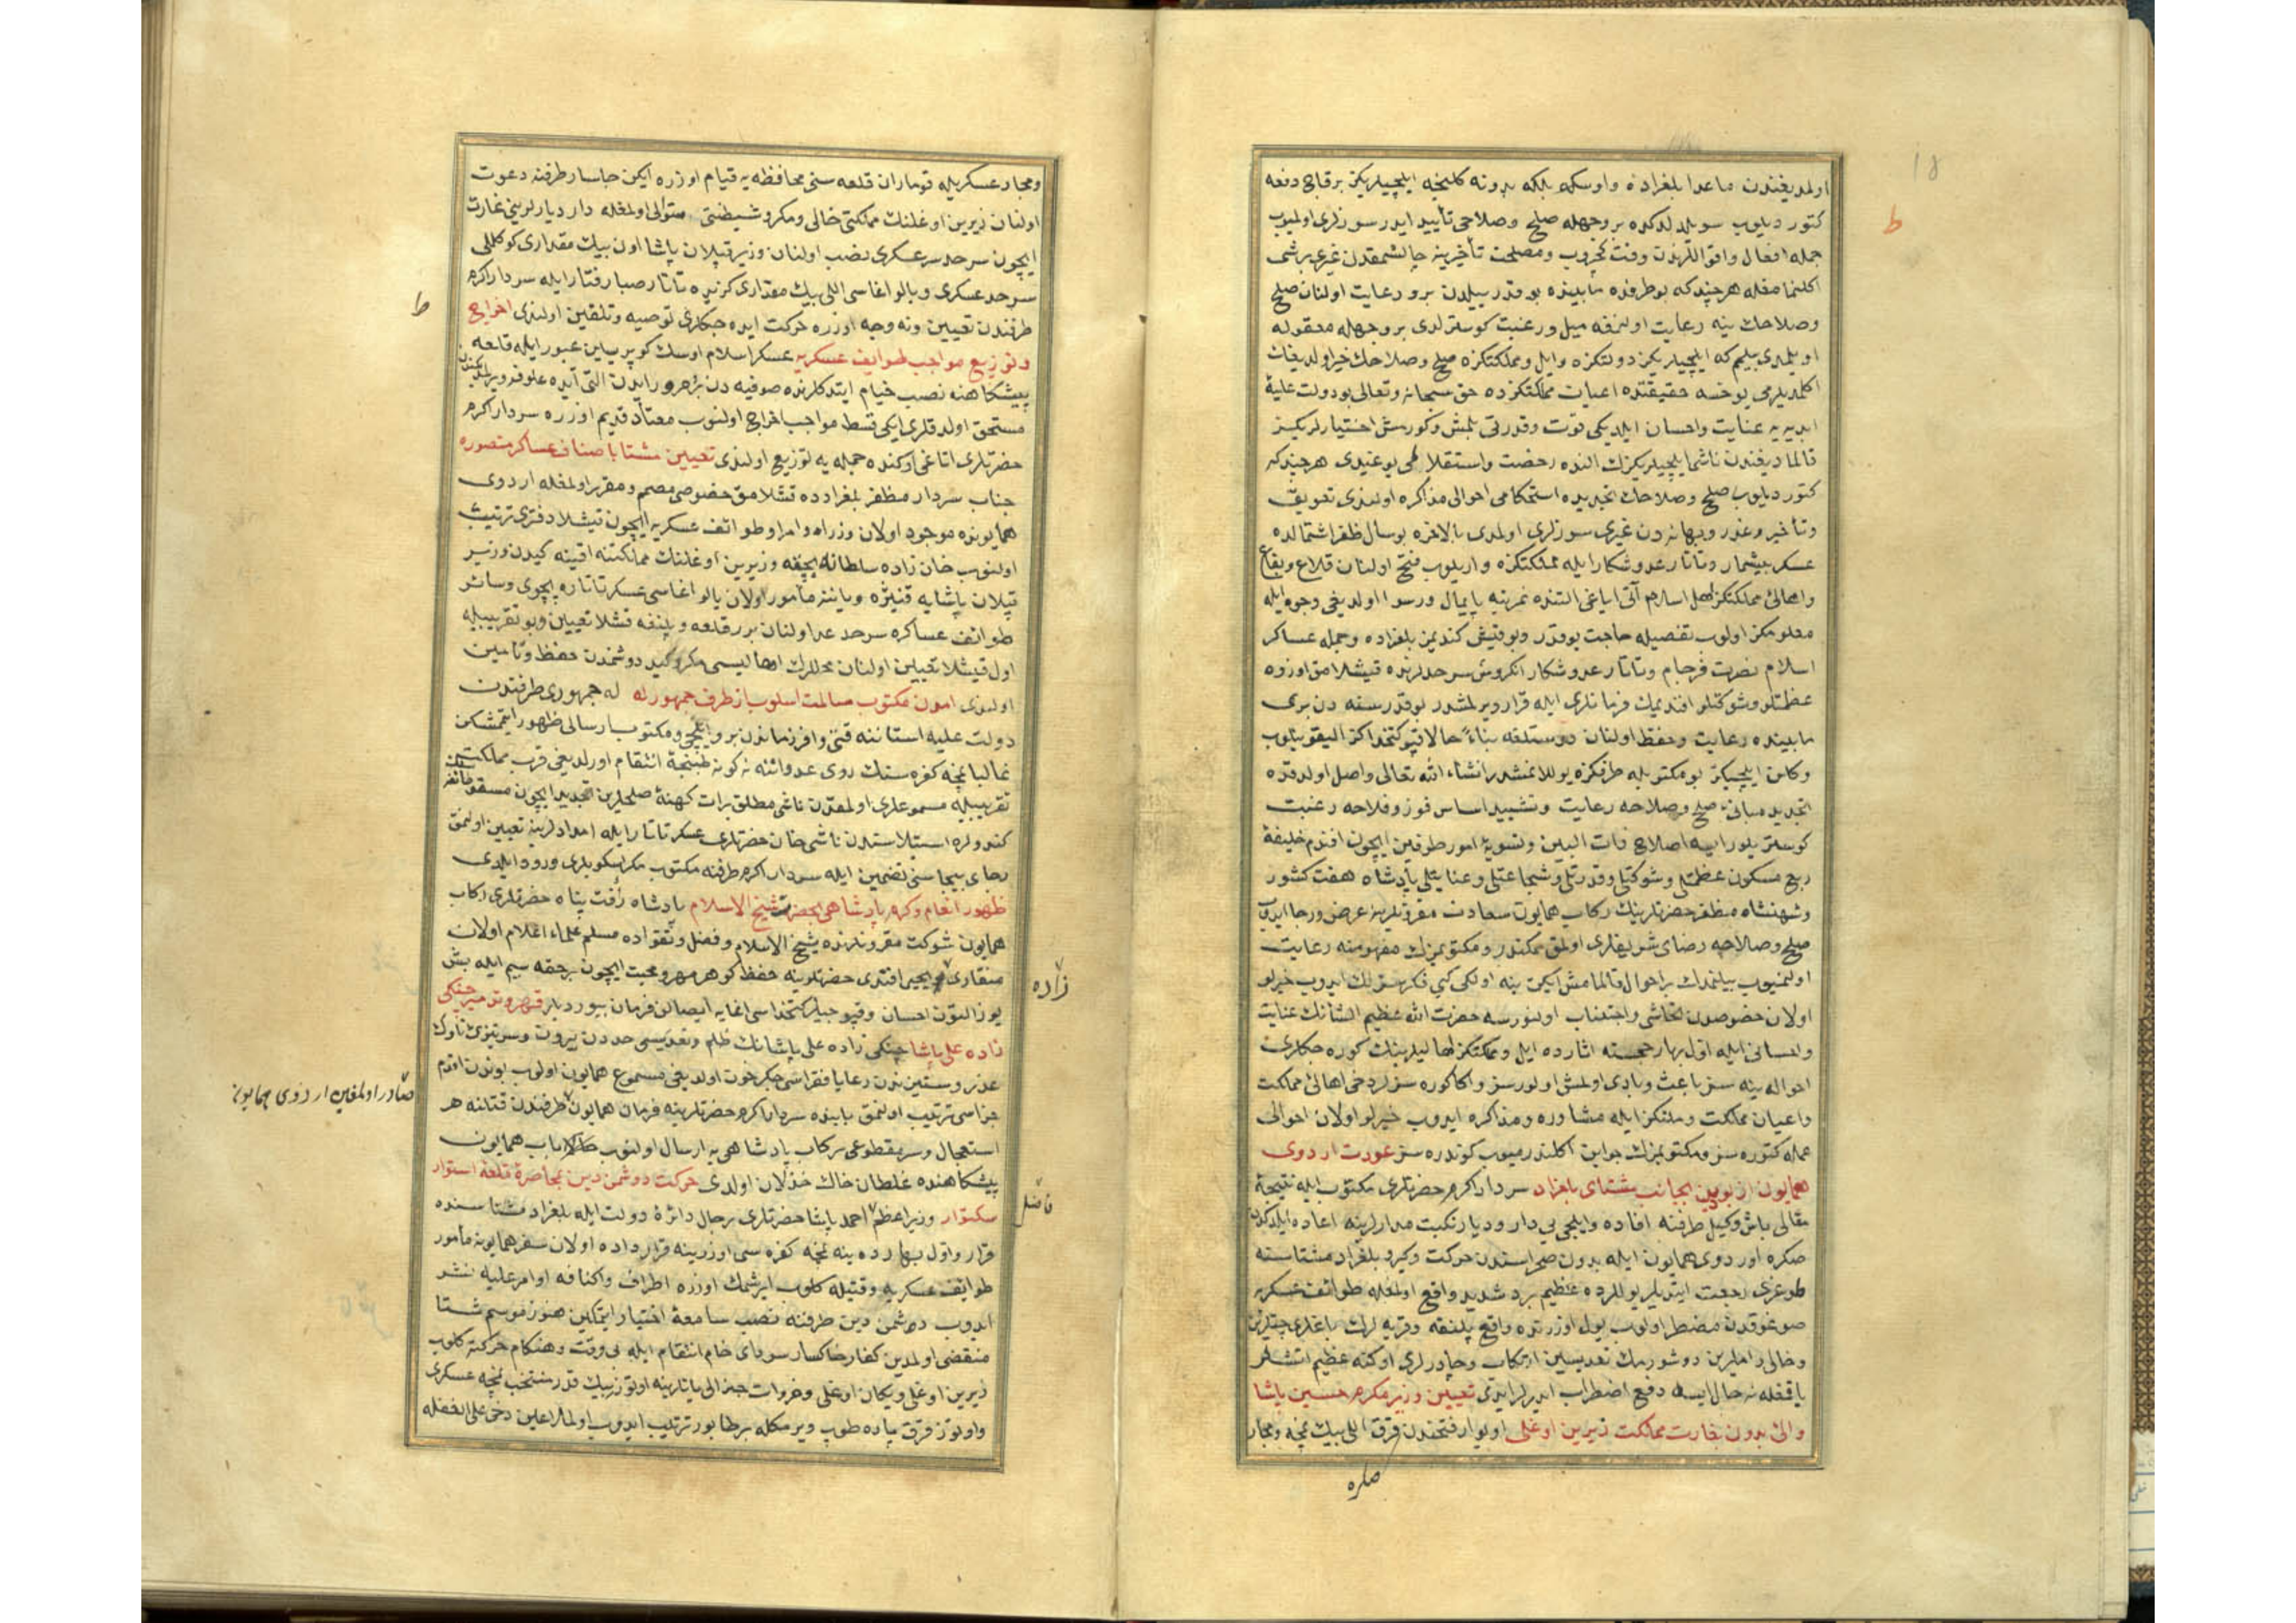 اولمدیغندن ماعدا بلغراده و اوسکه بلکه بدونه کلنجه ایلچیلریکز بر قاچ دفعه
کتورديلوب سویلدلدکده بر وجهله صلح و صلاحی تأیید ایدر سوزلری اولمیوب
جمله افعال و اقواللرندن وقت کچروب و مصلحت تأخیرینه چالشمقدن غیری بر شی
اکلنمامغله هر چند که بو طرفده مابینده بو قدر ییلدن برو رعایت اولنان صلح
و صلاحك ینه رعایت اولنمغه میل و رغبت کوسترلدی بر وجهله معقوله
اویلمدی بیلم که ایلچیلریکز دولتکزه و ایل و مملکتکزه صلح و صلاحك خیر اولدیغین
اکلمدیلرمی یوخسه حقیقتده اعیان مملکتکزده حق سبحانه و تعالی بو دولت علیهٔ
ابدیه یه عنایت و احسان ایلدیکی قوت و قدرتی بلمش و کورمش اختیارلریکز
قالمادیغندن ناشی ایلچیلریکزك النده رخصت و استقلاللری یوغیدی هر چند که
کتوردیلوب صلح و صلاحك تجدیده استحکامی احوالی مذاکره اولندی تعویق
و تأخیر و عذر و بهانه دن غیری سوزلری اولمدی بالاخره بو سال ظفر اشتمالده
عسکر بیشمار و تاتار عدو شکار ایله مملکتکزه واریلوب فتح اولنان قلاع و بقاع
و اهالئ مملکتکز اهل اسلام آتی ایاغی التنده نه مرتبه پایمال و رسوا اولدیغی وجوه ایله
معلومکز اولوب تفصیله حاجت یوقدر و بو قیش کندیمز بلغراده و جمله عساکر
اسلام نصرت فرجام و تاتار عدو شکار انکروس سرحدلرنده قیشلامق اوزره
عظمتلو و شوکتلو افندیمك فرمانلری ایله قرار ویرلمشدر بو قدر سنه دن بری
مابینده رعایت و حفظ اولنان دوستلغه بناءً حالا قپو کتخداکز الیقویلوب
و کلان ایلچیکز بو مکتوبله طرفکزه یوللانمشدر انشاء الله تعالی واصل اولدقده
تجدید مبانئ صلح و صلاحه رعایت و تشیید اساس فوز و فلاحه رغبت
کوستریلور ایسه اصلاح ذات البین و تسویهٔ امور طرفین ایچون افندم خلیفهٔ
ربع مسکون عظمتلی و شوکتلی و قدرتلی و شجاعتلی و عنایتلی پادشاه هفت کشور
و شهنشاه مظفر حضرتلرینك رکاب همایون سعادت مقرونلرینه عرض و رجا ایدوب
صلح و صلاحه رضای شریفلری اولمق ممکندر و مکتوبمزك مفهومنه رعایت
اولنمیوب بیلنمدك بر احوال قالمامش ایکن ینه اولکی کبی فکرسزلك ایدوب خیرلو
اولان خصوصدن تحاشی و اجتناب اولنورسه حضرت الله عظیم الشانك عنایت
و احسانی ایله اول بهار خجسته اثارده ایل و مملکتکز اهالیلرینك کوره جکلری
احواله ینه سز باعث و بادی اولمش اولورسز و اکا کوره سزلر دخی اهالئ مملکت
و اعیان مملکت و ملتکز ایله مشاوره و مذاکره ایدوب خیرلو اولان احوالی
عمله کتوره سز و مکتوبمزك جوابن اکلندرمیوب کوندره سز عودت اردوی
همایون از بودین بجانب مشتای بلغراد سردار اکرم حضرتلری مکتوب ایله نتیجهٔ
مقالی باش وکیل طرفنه افاده و ایلچی بی دار و دیار نکبت مدارلرینه اعاده ایلدکدن
صکره اوردوی همایون ایله بدون صحراسندن حرکت و کیرو بلغراد مشتاسنه
طوغری رجعت ایتدیلر یوللرده عظیم برد شدید واقع اولمغله طوائف عسکریه
صوغوقدن مضطر اولوب یول اوزرنده واقع پلنقه و قریه لرك باغلری چیتلرین
و خالی داملرین دوشورمك تعدیسین ارتکاب و چادرلری اوکنه عظیم اتشلر
یاقمغله نه حال ایسه دفع اضطراب ایدرلر ایدی تعیین وزیر مکرم حسین پاشا
والئ بدون بغارت مملکت زیرین اوغلی اویوار فتحندن قرق اللی بیك نمچه و مجار
صکره
و مجار عسکریله قوماران قلعه سنی محافظه یه قیام اوزره ایکن جاسار طرفنه دعوت
اولنان زیرین اوغلنك مملکتی خالی و مکر و شیطنتی متوالی اولمغله دار دیارلرینی غارت
ایچون سرحد سرعسکری نصب اولنان وزیر قپلان پاشا اون بیك مقداری کوکللی
سرحد عسکری و یالو اغاسی اللی بیك مقداری کزیده تاتار صبا رفتار ایله سردار اکرم
طرفندن تعیین و نه وجه اوزره حرکت ایده جکلری توصیه و تلقین اولندی اخراج
و توزیع مواجب طوایف عسکریه عسکر اسلام اوسك کوپریسین عبور ایله قلعه
پیشکاهنه نصب خیام ایتدکلرنده صوفیه دن برو مرور ایدن التی آیده علوفه ویرلمکدن
مستحق اولدقلری ایکی قسط مواجب اخراج اولنوب معتاد قدیم اوزره سردار اکرم
حضرتلری اتاغی اوکنده جمله یه توزیع اولندی تعیین مشتا باصناف عساکر منصوره
جناب سردار مظفر بلغرادده قشلامق خصوصی مصمم و مقرر اولمغله اردوی
همایونده موجود اولان وزراء و امرا و طوائف عسکریه ایچون قیشلا دفتری ترتیب
اولنوب خان زاده سلطانلر ایچقه و زیرین اوغلنك مملکتنه اقینه کیدن وزیر
قپلان پاشایه قنیژه و یاننه مأمور اولان یالو اغاسی عسکر تاتاره پچوی و سائر
طوائف عساکره سرحد عد اولنان برر قلعه و پلنقه قشلا تعیین و بو تقریبیله
اول قیشلا تعیین اولنان محللرك اهالیسی مکر و کید دوشمندن حفظ و تأمین
اولندی آمدن مکتوب مسالمت اسلوب از طرف جمهور له له جمهوری طرفندن
دولت علیه استاننه قتی وافر زماندن برو ایلچی و مکتوب ارسالی ظهور ایتمشکن
غالبا نمچه کفره سنك روی عدواننه نه کونه طپنجهٔ انتقام اورلدیغی قرب مملکت
تقریبیله مسموعلری اولمغدن ناشی مطلق برات کهنهٔ صلحلرین تجدید ایچون مسقو طائفه سنك
کندولره استیلاسندن ناشی خان حضرتلری عسکر تاتار ایله امدادلرینه تعیین اولنمق
رجای بیجاسنی تضمین ایله سردار اکرم طرفنه مکتوب مکر اسلوبلری ورود ایلدی
ظهور انعام و کرم پادشاهی بحضرت شیخ الاسلام پادشاه رأفت پناه حضرتلری رکاب
همایون شوکت مقرونلرنده شیخ الاسلام و فضل و تقواده مسلم علماء اعلام اولان
منقاری یحیی افندی حضرتلرینه حفظ کوهر مهر و محبت ایچون بر حقه سیم ایله بش
زاده
یوز التون احسان و قپوجیلر کتخداسی اغایه ایصالن فرمان بیوردیلر قهر و تدمیر چنکی
زاده علی پاشا چنکی زاده علی پاشانك ظلم و تعدیسی حددن بیرون و سر تیزئ ناوك
عذر و ستیزندن رعایا فقراسی جکر خون اولدیغی مسموع همایون اولوب بوندن اقدم
جزاسی ترتیب اولنمق بابنده سردار اکرم حضرتلرینه فرمان همایون طرفندن قتلنه هر
صادر اولمغین اردوی همایون
استعجال و سر مقطوعی رکاب پادشاهی یه ارسال اولنوب حالا باب همایون
پیشکاهنده غلطان خاك خذلان اولدی حرکت دوشمن دین بمحاصرهٔ قلعهٔ استوار
سکتوار وزیر اعظم احمد پاشا حضرتلری رجال دائرهٔ دولت ایله بلغراد مشتاسنده
فاضل
قرار و اول بهارده ینه نمچه کفره سی اوزرینه قرارداده اولان سفر همایونه مأمور
طوائف عسکریه وقتیله کلوب ایرشمك اوزره اطراف و اکنافه اوامر علیه نشر
ایدوب دشمن دین طرفنه نصب سامعهٔ اختیار ایتمکین هنوز موسم شتا
منقضی اولمدین کفار خاکسار سودای خام انتقام ایله بی وقت و هنکام حرکته کلوب
زیرین اوغلی و یکان اوغلی و خروات جنرالی یانلرینه اوتوز بیك قدر منتخب نمچه عسکری
و اوتوز قرق پاره طوپ ویرمکله بر طابور ترتیب ایدوب اول ملاعین دخی علی الغفله